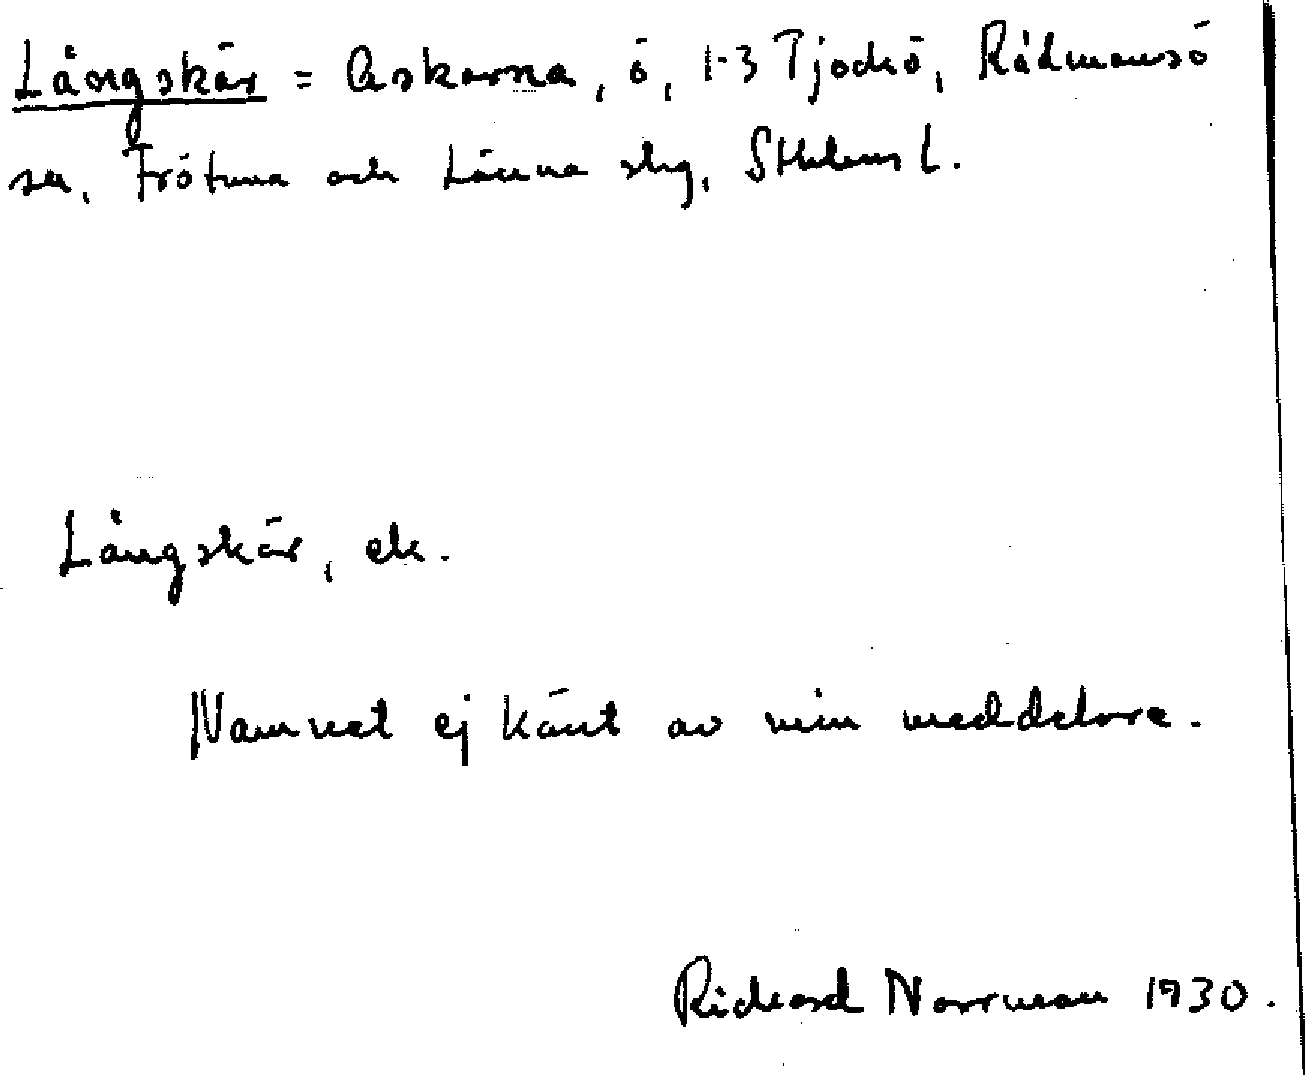 Långskär = Askarna, ö, 1-3 Tjockö, Rådmansö
sn, Frötuna och Länna slg, Sthlms L.
Långskär, ek.
Namnet ej känt av min meddelare.
Richard Norrman 1930.